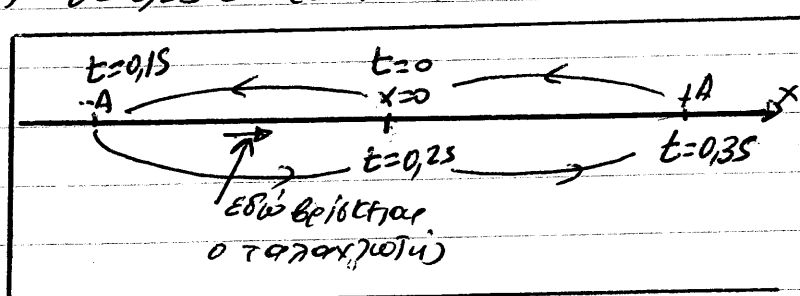 t=0,1s t=0
-A x=0 +A x
t=0,2s t=0,3s
εδώ βρίσκεται
ο ταλαντωτής